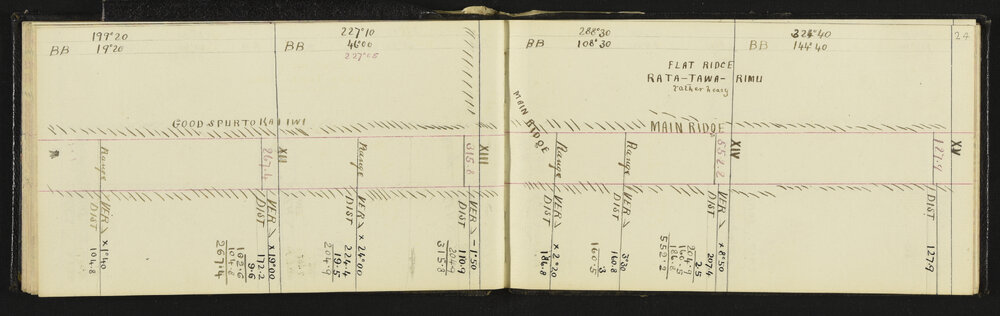 199°20
BB 19°20
227°10
BB 46°00
227°05
288°30
BB 108°30
324°40
BB 144°40
24
FLAT RIDGE
RATA-TAWA-RIMU
rather heavy
GOOD SPUR TO KAIIWI
MAIN RIDGE
MAIN RIDGE
Range
267.4
XII
Range
315.8
XIII
Range
Range
552.2
XIV
127.9
XV
VER × 1°40
DIST 104.8
VER × 19°00
DIST 172.2
9.6
162.6
104.8
267.4
VER × 24°00
DIST 224.4
19.5
204.9
VER - 1°50
DIST 110.9
204.9
315.8
VER × 2°20
DIST 186.8
VER 3°30
DIST 160.8
.3
160.5
VER × 8°50
DIST 207.4
2.5
204.9
160.5
186.8
552.2
DIST 127.9